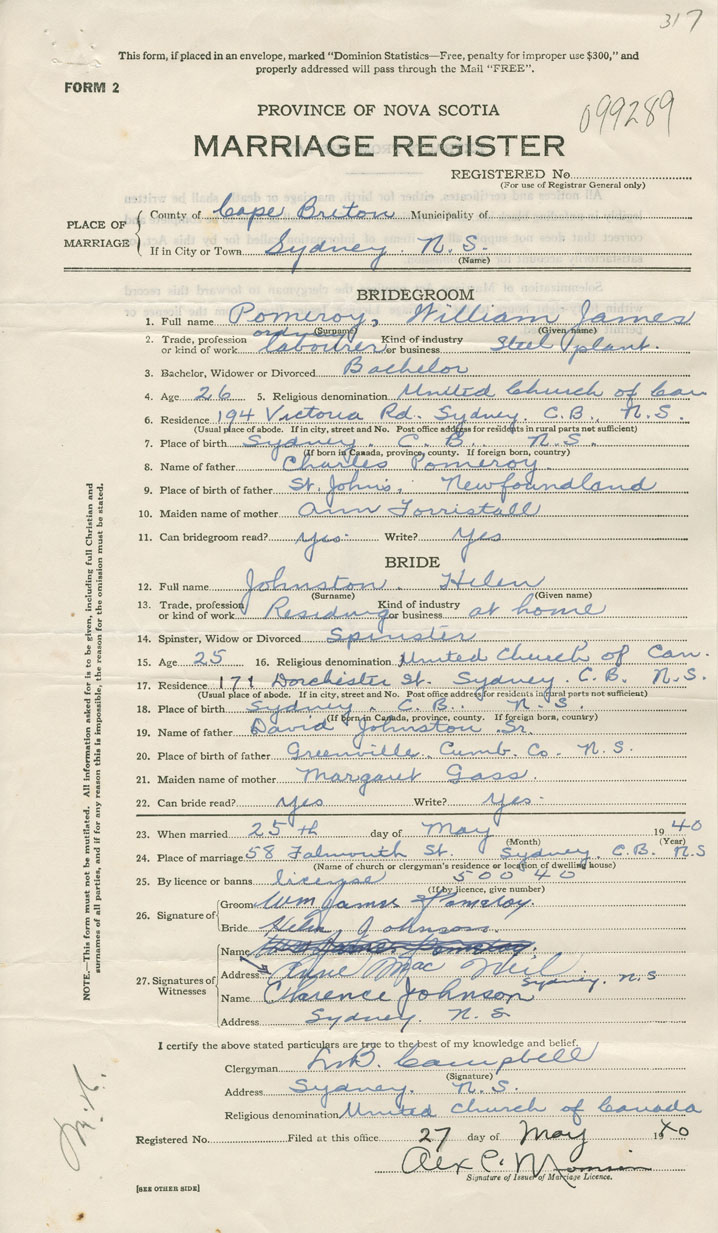 317
This form, if placed in an envelope, marked "Dominion Statistics—Free, penalty for improper use $300," and
properly addressed will pass through the Mail "FREE".
FORM 2
099289
PROVINCE OF NOVA SCOTIA
MARRIAGE REGISTER
REGISTERED No.
(For use of Registrar General only)
PLACE OF MARRIAGE
County of Cape Breton Municipality of
If in City or Town Sydney N.S.
(Name)
BRIDEGROOM
1. Full name Pomeroy, William James
(Surname) (Given name)
2. Trade, profession or kind of work ordinary labourer Kind of industry or business Steel plant.
3. Bachelor, Widower or Divorced Bachelor
4. Age 26 5. Religious denomination United Church of Can
6. Residence 194 Victoria Rd. Sydney. C.B., N.S.
(Usual place of abode. If in city, street and No. Post office address for residents in rural parts not sufficient)
7. Place of birth Sydney. C.B. N.S.
(If born in Canada, province, county. If foreign born, country)
8. Name of father Charles Pomeroy.
9. Place of birth of father St. John's. Newfoundland
10. Maiden name of mother Ann Forristall
11. Can bridegroom read? Yes. Write? Yes
BRIDE
12. Full name Johnston. Helen
(Surname) (Given name)
13. Trade, profession or kind of work Residing Kind of industry or business at home
14. Spinster, Widow or Divorced Spinster
15. Age 25 16. Religious denomination United Church of Can.
17. Residence 171 Dorchester St. Sydney. C.B. N.S.
(Usual place of abode. If in city, street and No. Post office address for residents in rural parts not sufficient)
18. Place of birth Sydney. C.B. N.S.
(If born in Canada, province, county. If foreign born, country)
19. Name of father David Johnston Sr.
20. Place of birth of father Greenville. Cumb. Co. N.S.
21. Maiden name of mother Margaret Gass.
22. Can bride read? Yes Write? Yes.
23. When married 25th day of May 1940
(Month) (Year)
24. Place of marriage 58 Falmouth St. Sydney. C.B. N.S
(Name of church or clergyman's residence or location of dwelling house)
25. By licence or banns license 50040
(If by licence, give number)
26. Signature of
Groom Wm James Pomeroy.
Bride Helen Johnson.
27. Signatures of Witnesses
Name
Address Anne Mac Neil Sydney. N.S
Name Clarence Johnson
Address Sydney. N.S
I certify the above stated particulars are true to the best of my knowledge and belief.
Clergyman Campbell
(Signature)
Address Sydney. N.S.
Religious denomination United Church of Canada
Registered No. Filed at this office 27 day of May 1940
Alex C.
Signature of Issuer of Marriage Licence.
[SEE OTHER SIDE]
NOTE.—This form must not be mutilated. All information asked for is to be given, including full Christian and
surnames of all parties, and if for any reason this is impossible, the reason for the omission must be stated.